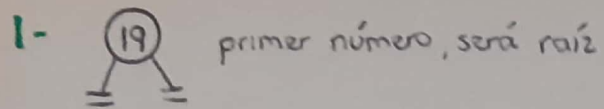 1- 19 primer número, será raíz